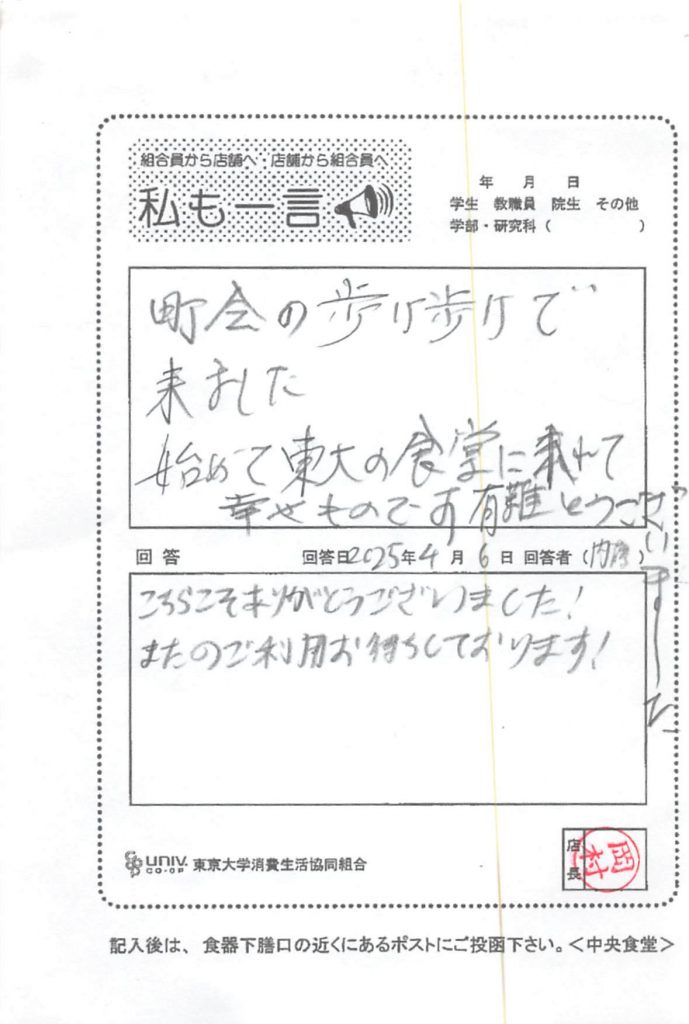 組合員から店舗へ・店舗から組合員へ
私も一言
年 月 日
学生 教職員 院生 その他
学部・研究科( )
町会の歩け歩けで
来ました
始めて東大の食堂に来れて
幸せものです有難とうございました
回答 回答日2025年4月6日 回答者( )
こちらこそありがとうございました!
またのご利用お待ちしております!
UNIV. CO-OP 東京大学消費生活協同組合
店長
岡村
記入後は、食器下膳口の近くにあるポストにご投函下さい。<中央食堂>